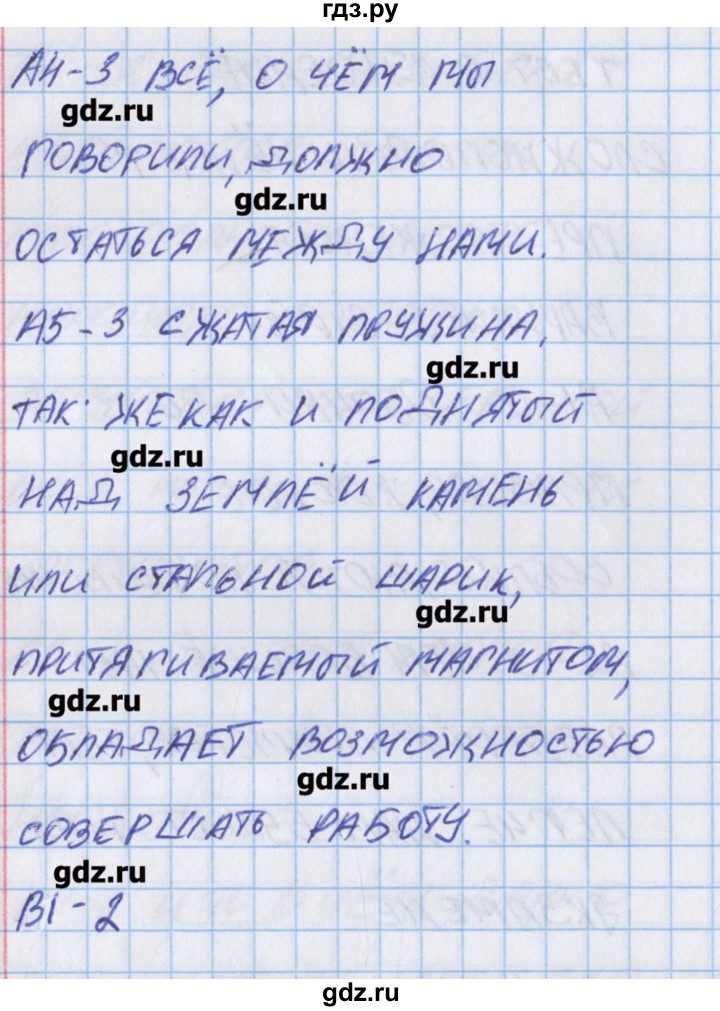 гдз.ру
А4-3 ВСЁ, О ЧЁМ МЫ
gdz.ru
ГОВОРИЛИ, ДОЛЖНО
gdz.ru
ОСТАТЬСЯ МЕЖДУ НАМИ.
А5-3 СЖАТАЯ ПРУЖИНА,
gdz.ru
ТАК ЖЕ КАК И ПОДНЯТЫЙ
gdz.ru
НАД ЗЕМЛЁЙ КАМЕНЬ
ИЛИ СТАЛЬНОЙ ШАРИК,
gdz.ru
ПРИТЯГИВАЕМЫЙ МАГНИТОМ,
gdz.ru
ОБЛАДАЕТ ВОЗМОЖНОСТЬЮ
gdz.ru
СОВЕРШАТЬ РАБОТУ.
gdz.ru
В1-2
gdz.ru